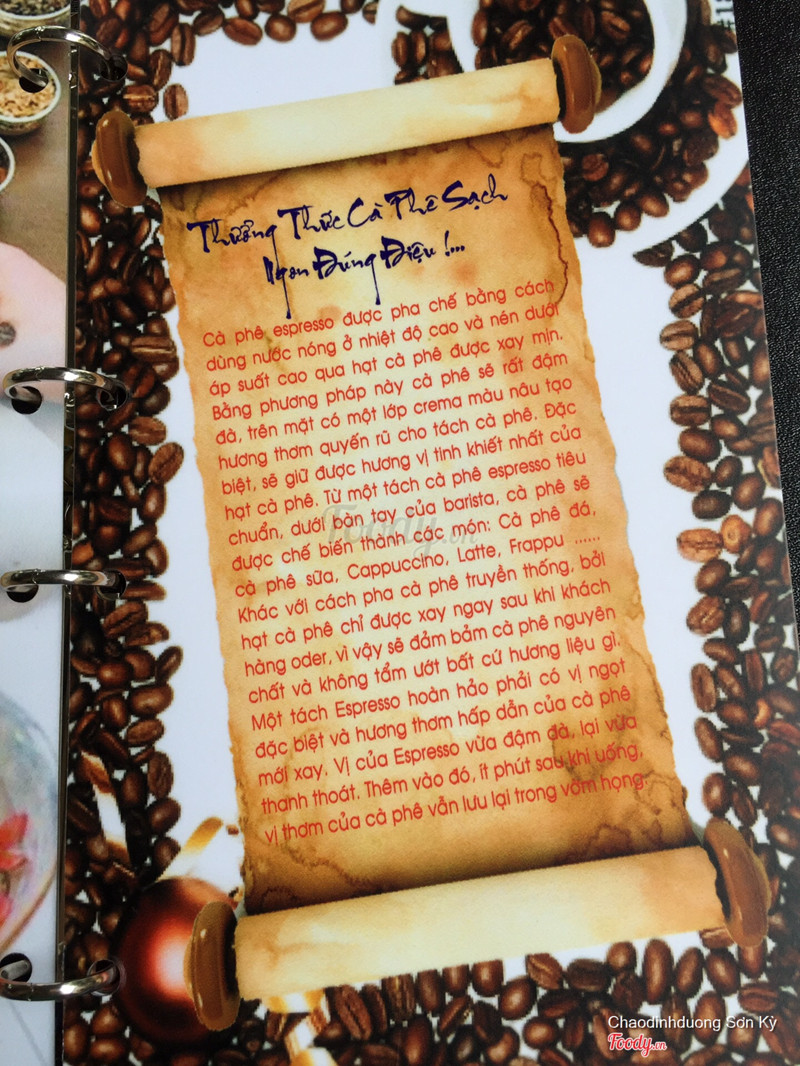 Thưởng Thức Cà Phê Sạch
Ngon Đúng Điệu !...
Cà phê espresso được pha chế bằng cách
dùng nước nóng ở nhiệt độ cao và nén dưới
áp suất cao qua hạt cà phê được xay mịn.
Bằng phương pháp này cà phê sẽ rất đậm
đà, trên mặt có một lớp crema màu nâu tạo
hương thơm quyến rũ cho tách cà phê. Đặc
biệt, sẽ giữ được hương vị tinh khiết nhất của
hạt cà phê. Từ một tách cà phê espresso tiêu
chuẩn, dưới bàn tay của barista, cà phê sẽ
được chế biến thành các món: Cà phê đá,
cà phê sữa, Cappuccino, Latte, Frappu ......
Khác với cách pha cà phê truyền thống, bởi
hạt cà phê chỉ được xay ngay sau khi khách
hàng oder, vì vậy sẽ đảm bảm cà phê nguyên
chất và không tẩm ướt bất cứ hương liệu gì.
Một tách Espresso hoàn hảo phải có vị ngọt
đặc biệt và hương thơm hấp dẫn của cà phê
mới xay. Vị của Espresso vừa đậm đà, lại vừa
thanh thoát. Thêm vào đó, ít phút sau khi uống,
vị thơm của cà phê vẫn lưu lại trong vòm họng.
Foody.vn
Chaodinhduong Sơn Kỳ
Foody.vn